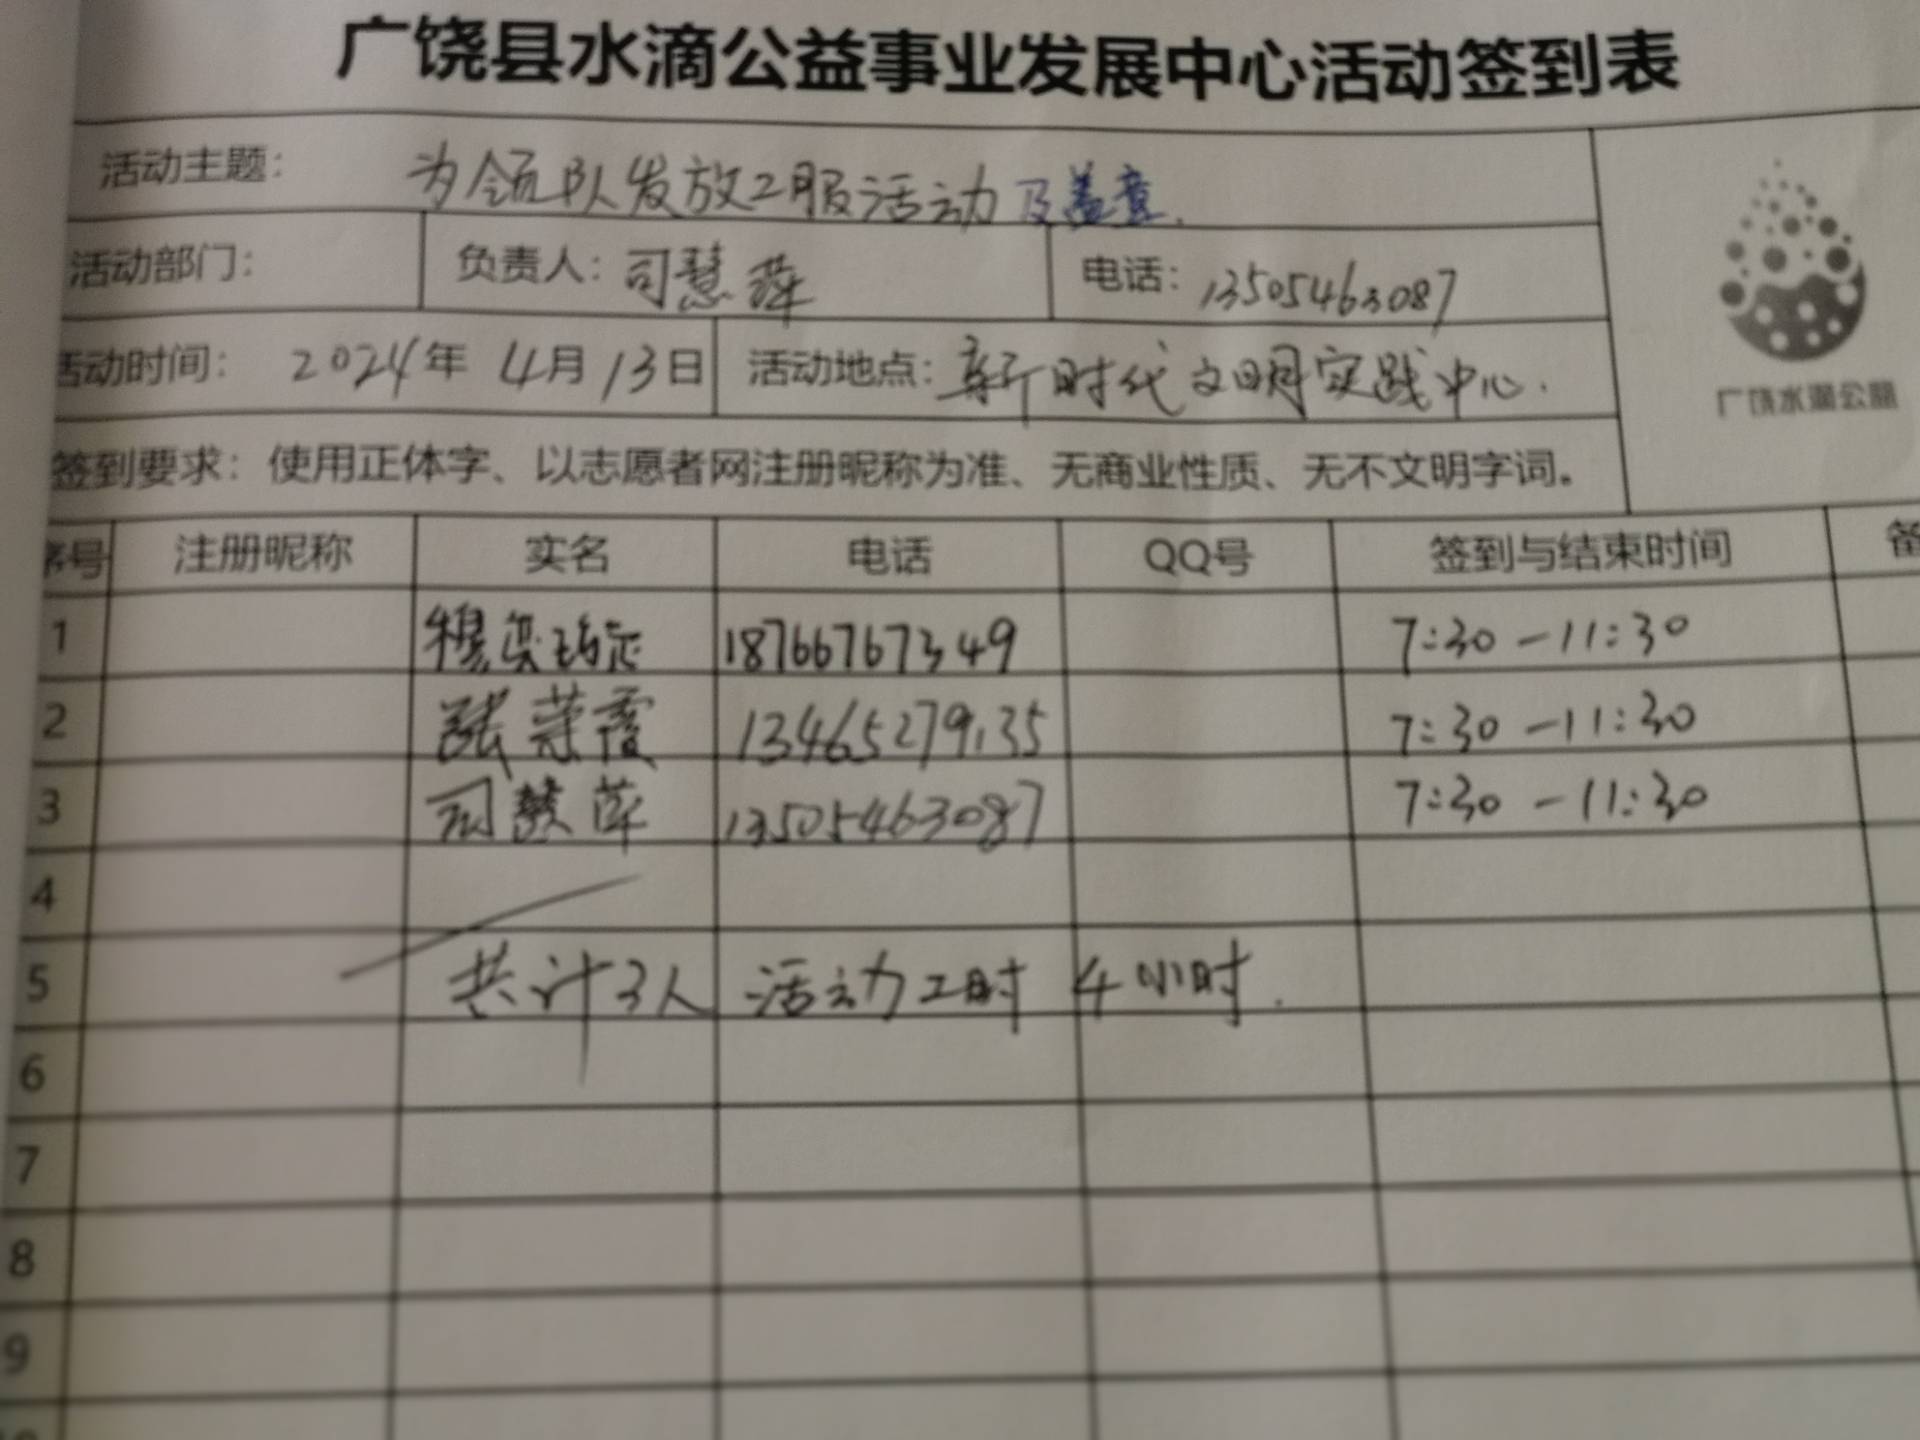 广饶县水滴公益事业发展中心活动签到表
活动主题： 为领队发放工服活动及盖章.
活动部门： 负责人：司慧萍 电话：13505463087
活动时间： 2024年 4月 13日 活动地点：新时代文明实践中心.
广饶水滴公益
签到要求：使用正体字、以志愿者网注册昵称为准、无商业性质、无不文明字词。
序号 注册昵称 实名 电话 QQ号 签到与结束时间
1 穆 18766767349 7:30-11:30
2 张荣霞 13465279135 7:30-11:30
3 司慧萍 13505463087 7:30-11:30
4
5 共计3人 活动工时 4小时.
6
7
8
9